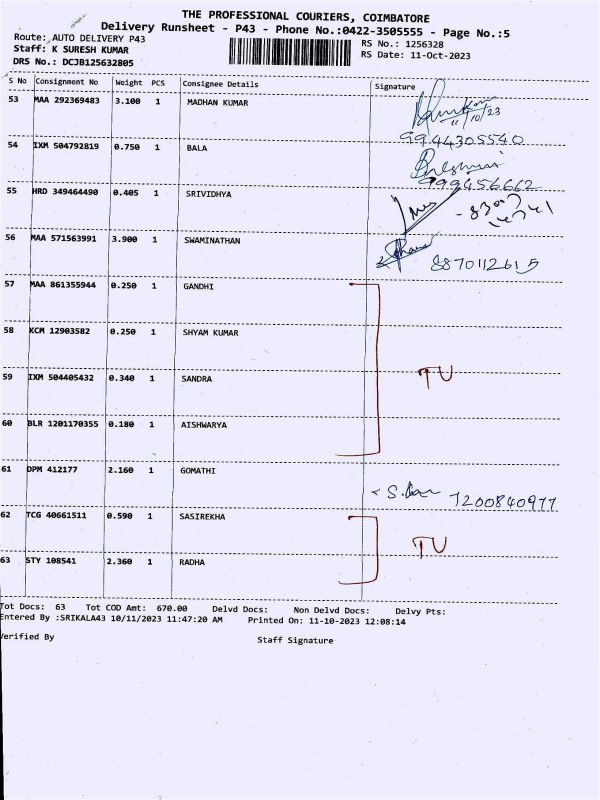 THE PROFESSIONAL COURIERS, COIMBATORE
Delivery Runsheet - P43 - Phone No.:0422-3505555 - Page No.:5
Route: AUTO DELIVERY P43
RS No.: 1256328
Staff: K SURESH KUMAR
RS Date: 11-Oct-2023
DRS No.: DCJB125632805
S No Consignment No Weight PCS Consignee Details Signature
53 MAA 292369483 3.100 1 MADHAN KUMAR
11/10/23
9944305540
54 IXM 504792819 0.750 1 BALA
999456662
55 HRD 349464490 0.405 1 SRIVIDHYA
56 MAA 571563991 3.900 1 SWAMINATHAN
8870112615
57 MAA 861355944 0.250 1 GANDHI
58 KCM 12903582 0.250 1 SHYAM KUMAR
59 IXM 504405432 0.340 1 SANDRA
TU
60 BLR 1201170355 0.180 1 AISHWARYA
61 DPM 412177 2.160 1 GOMATHI
7200840977
62 TCG 40661511 0.590 1 SASIREKHA
TU
63 STY 108541 2.360 1 RADHA
Tot Docs: 63 Tot COD Amt: 670.00 Delvd Docs: Non Delvd Docs: Delvy Pts:
Entered By :SRIKALA43 10/11/2023 11:47:20 AM Printed On: 11-10-2023 12:08:14
Verified By Staff Signature